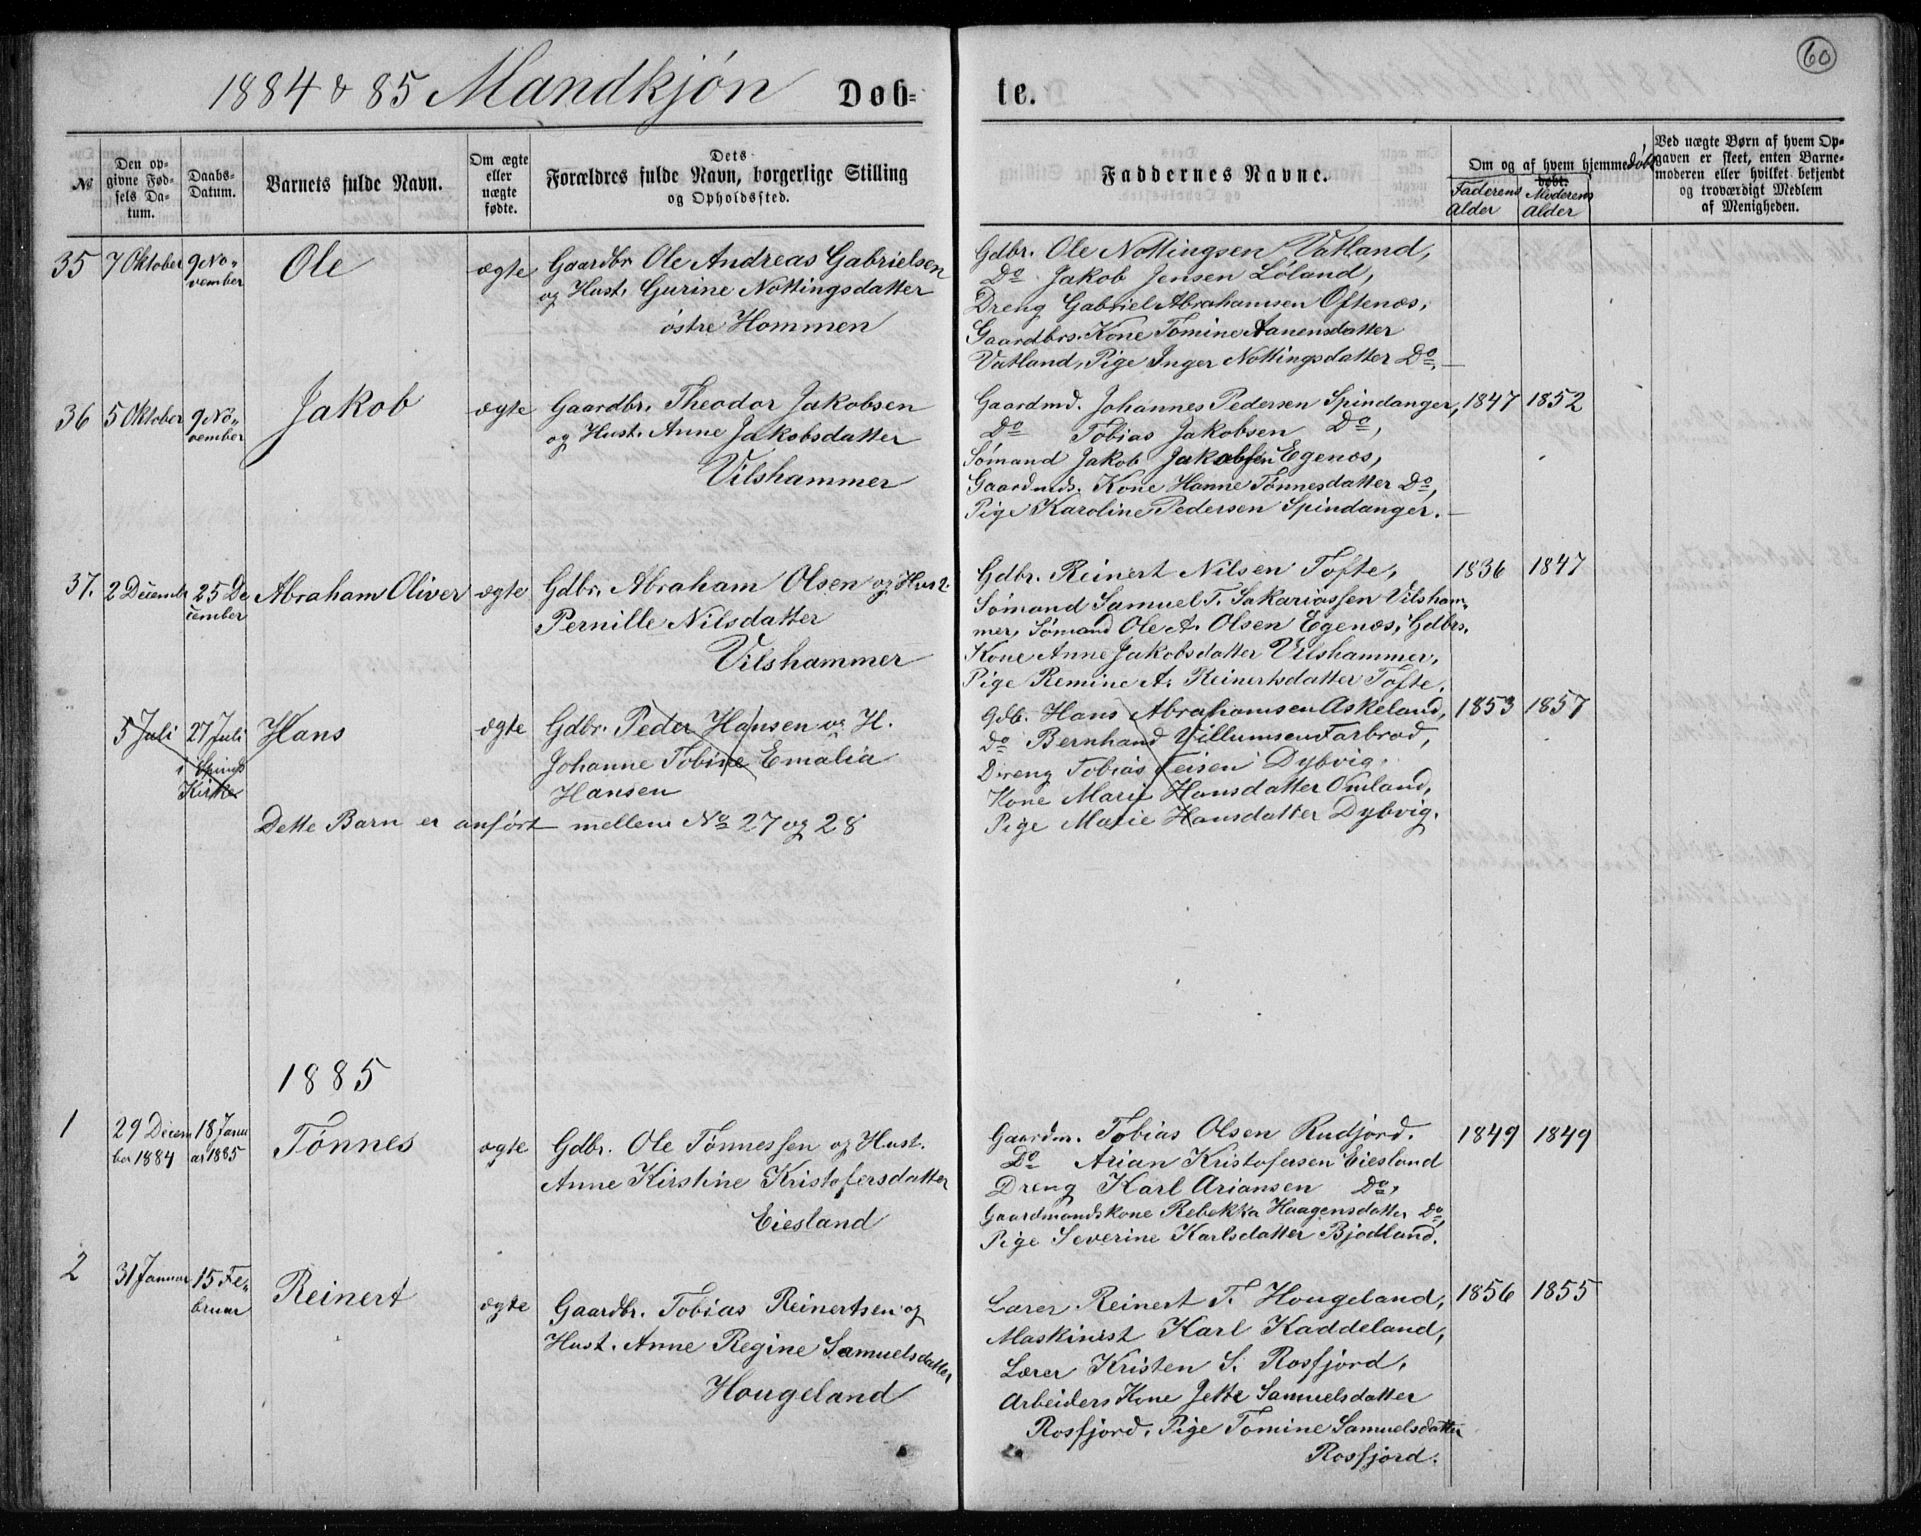 60
1884 & 85 Mandkjøn Døb=
te.
№
Den op-
givne Fød-
sels Da-
tum.
Daabs-
Datum.
Barnets fulde Navn.
Om ægte
eller
uægte
fødte.
Dets
Forældres fulde Navn, borgerlige Stilling
og Opholdssted.
Faddernes Navne.
Om og af hvem hjemmedöbt
döbt.
Faderens
Alder
Moderens
Alder
Ved uægte Børn af hvem Op-
gaven er skeet, enten Barne-
moderen eller hvilket bekjendt
og troværdigt Medlem
af Menigheden.
35 7 Oktober 9 No-
vember
Ole
ægte
Gaardbr. Ole Andreas Gabrielsen
og Hust. Gurine Nottingsdatter
östre Hommen
Gdbr. Ole Nottingsen Vatland,
Do Jakob Jensen Löland,
Dreng Gabriel Abrahamsen Oftenæs,
Gaardbrs. Kone Tomine Aanensdatter
Vatland, Pige Inger Nottingsdatter Do.
36 5 Oktober 9 No-
vember
Jakob
ægte
Gaardbr. Theodor Jakobsen
og Hust. Anne Jakobsdatter
Vilshammer
Gaardmd. Johannes Pedersen Spindanger, 1847 1852
Do Tobias Jakobsen Do,
Sømand Jakob Jakobsen Egenæs,
Gaardmds. Kone Hanne Tønnesdatter Do,
Pige Karoline Pedersen Spindanger.
37. 2 December 25 De
cember
Abraham Oliver
ægte
Gdbr. Abraham Olsen og Hust.
Pernille Nilsdatter
Vilshammer
Gdbr. Reinert Nilsen Tofte, 1836 1847
Sømand Samuel T. Sakariassen Vilsham-
mer, Sømand Ole A. Olsen Egenæs, Gdbrs.
Kone Anne Jakobsdatter Vilshammer,
Pige Remine A. Reinertsdatter Tofte.
5 Juli 27 Juli
i Spinds
Kirke
Hans
ægte
Gdbr. Peder Hansen og H.
Johanne Tobine Emalia
Hansen
Dette Barn er anført mellem No 27 og 28
Gdb. Hans Abrahamsen Askeland, 1853 1857
Do Bernhard Villumsen Farbrod,
Dreng Tobias Teisen Dybvig.
Kone Marie Hansdatter Omland,
Pige Marie Hansdatter Dybvig.
1885
1 29 Decem
ber 1884
18 Janu
ar 1885
Tønnes
ægte
Gdbr. Ole Tønnessen og Hust.
Anne Kirstine Kristofersdatter
Eiesland
Gaardm. Tobias Olsen Rudjord. 1849 1849
Do Arian Kristofersen Eiesland
Dreng Karl Ariansen Do,
Gaardmandskone Rebekka Haagensdatter Do,
Pige Severine Karlsdatter Bjodland.
2 31 Januar 15 Fe-
bruar
Reinert
ægte
Gaardbr. Tobias Reinertsen og
Hust. Anne Regine Samuelsdatter
Hougeland
Lærer Reinert T. Hougeland, 1856 1855
Maskinist Karl Kaddeland,
Lærer Kristen S. Rosfjord,
Arbeiders Kone Jette Samuelsdatter
Rosfjord, Pige Tomine Samuelsdatter
Rosfjord.